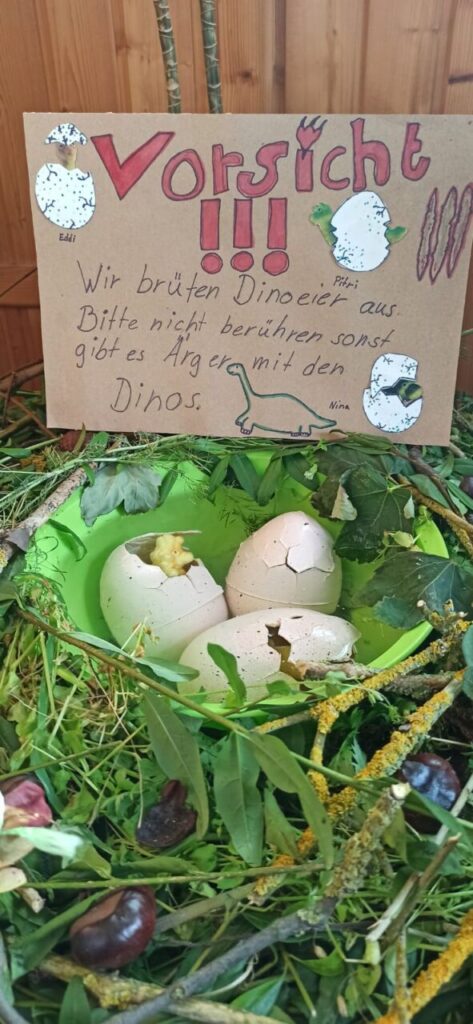 Vorsicht
!!!
Eddi
Pitri
Wir brüten Dinoeier aus.
Bitte nicht berühren sonst
gibt es Ärger mit den
Dinos.
Nina